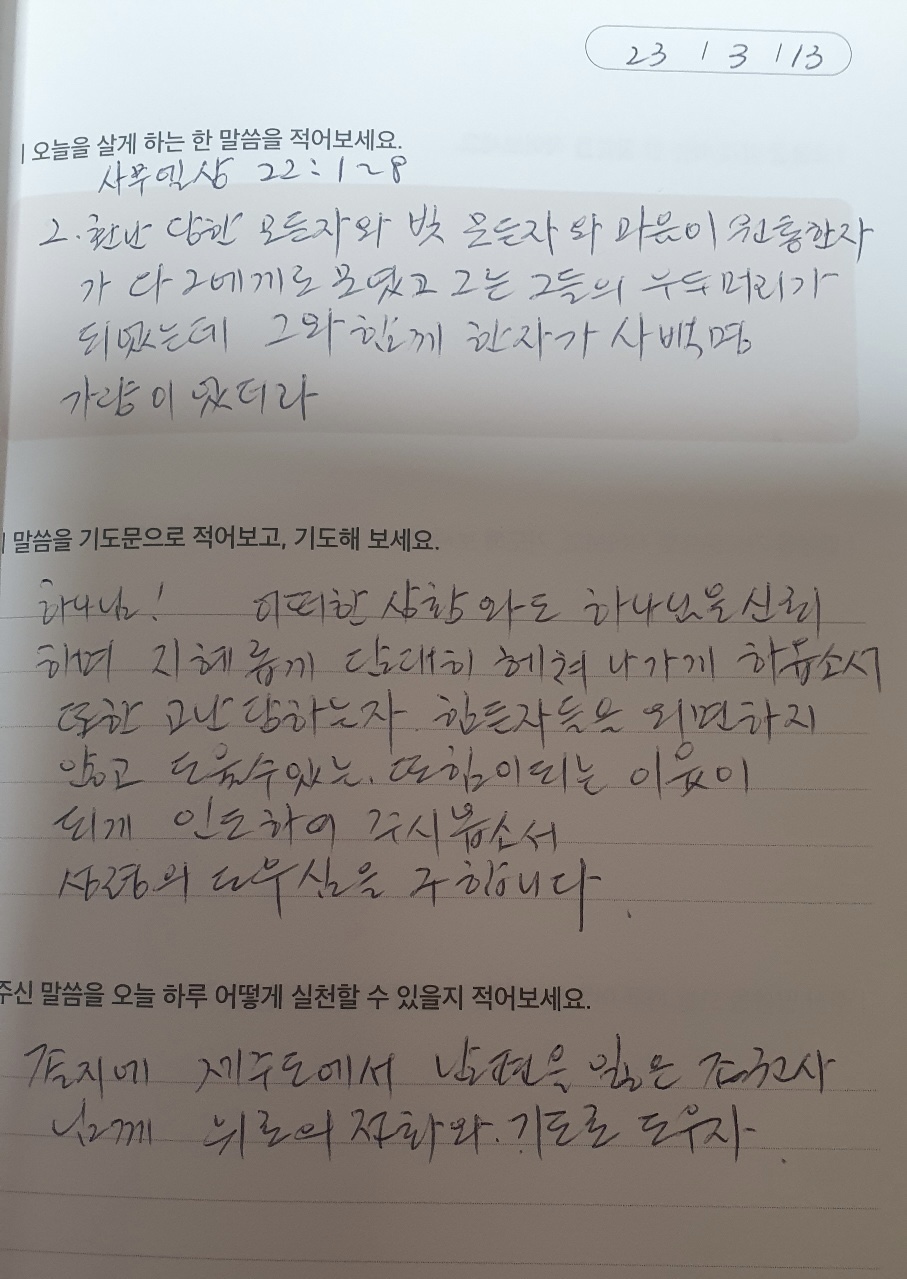 23 / 3 / 13
오늘을 살게 하는 한 말씀을 적어보세요.
사무엘상 22:1~8
2. 환난 당한 모든자와 빚 문든자와 마음이 원통한자
가 다 그에게로 모였고 그는 그들의 우두머리가
되었는데 그와 함께 한자가 사백명
가량이 었더라
말씀을 기도문으로 적어보고, 기도해 보세요.
하나님! 어떠한 상황와도 하나님을 신뢰
하며 지혜롭게 담대히 헤쳐 나가게 하옵소서
또한 고난 당하는자 힘든자들을 외면하지
않고 도울수있는, 또 힘이되는 이웃이
되게 인도하여 주시옵소서
성령의 도우심을 구합니다.
주신 말씀을 오늘 하루 어떻게 실천할 수 있을지 적어보세요.
갑지에 제주도에서 남편을 잃은 전도사
님께 위로의 전화와 기도로 도우자.